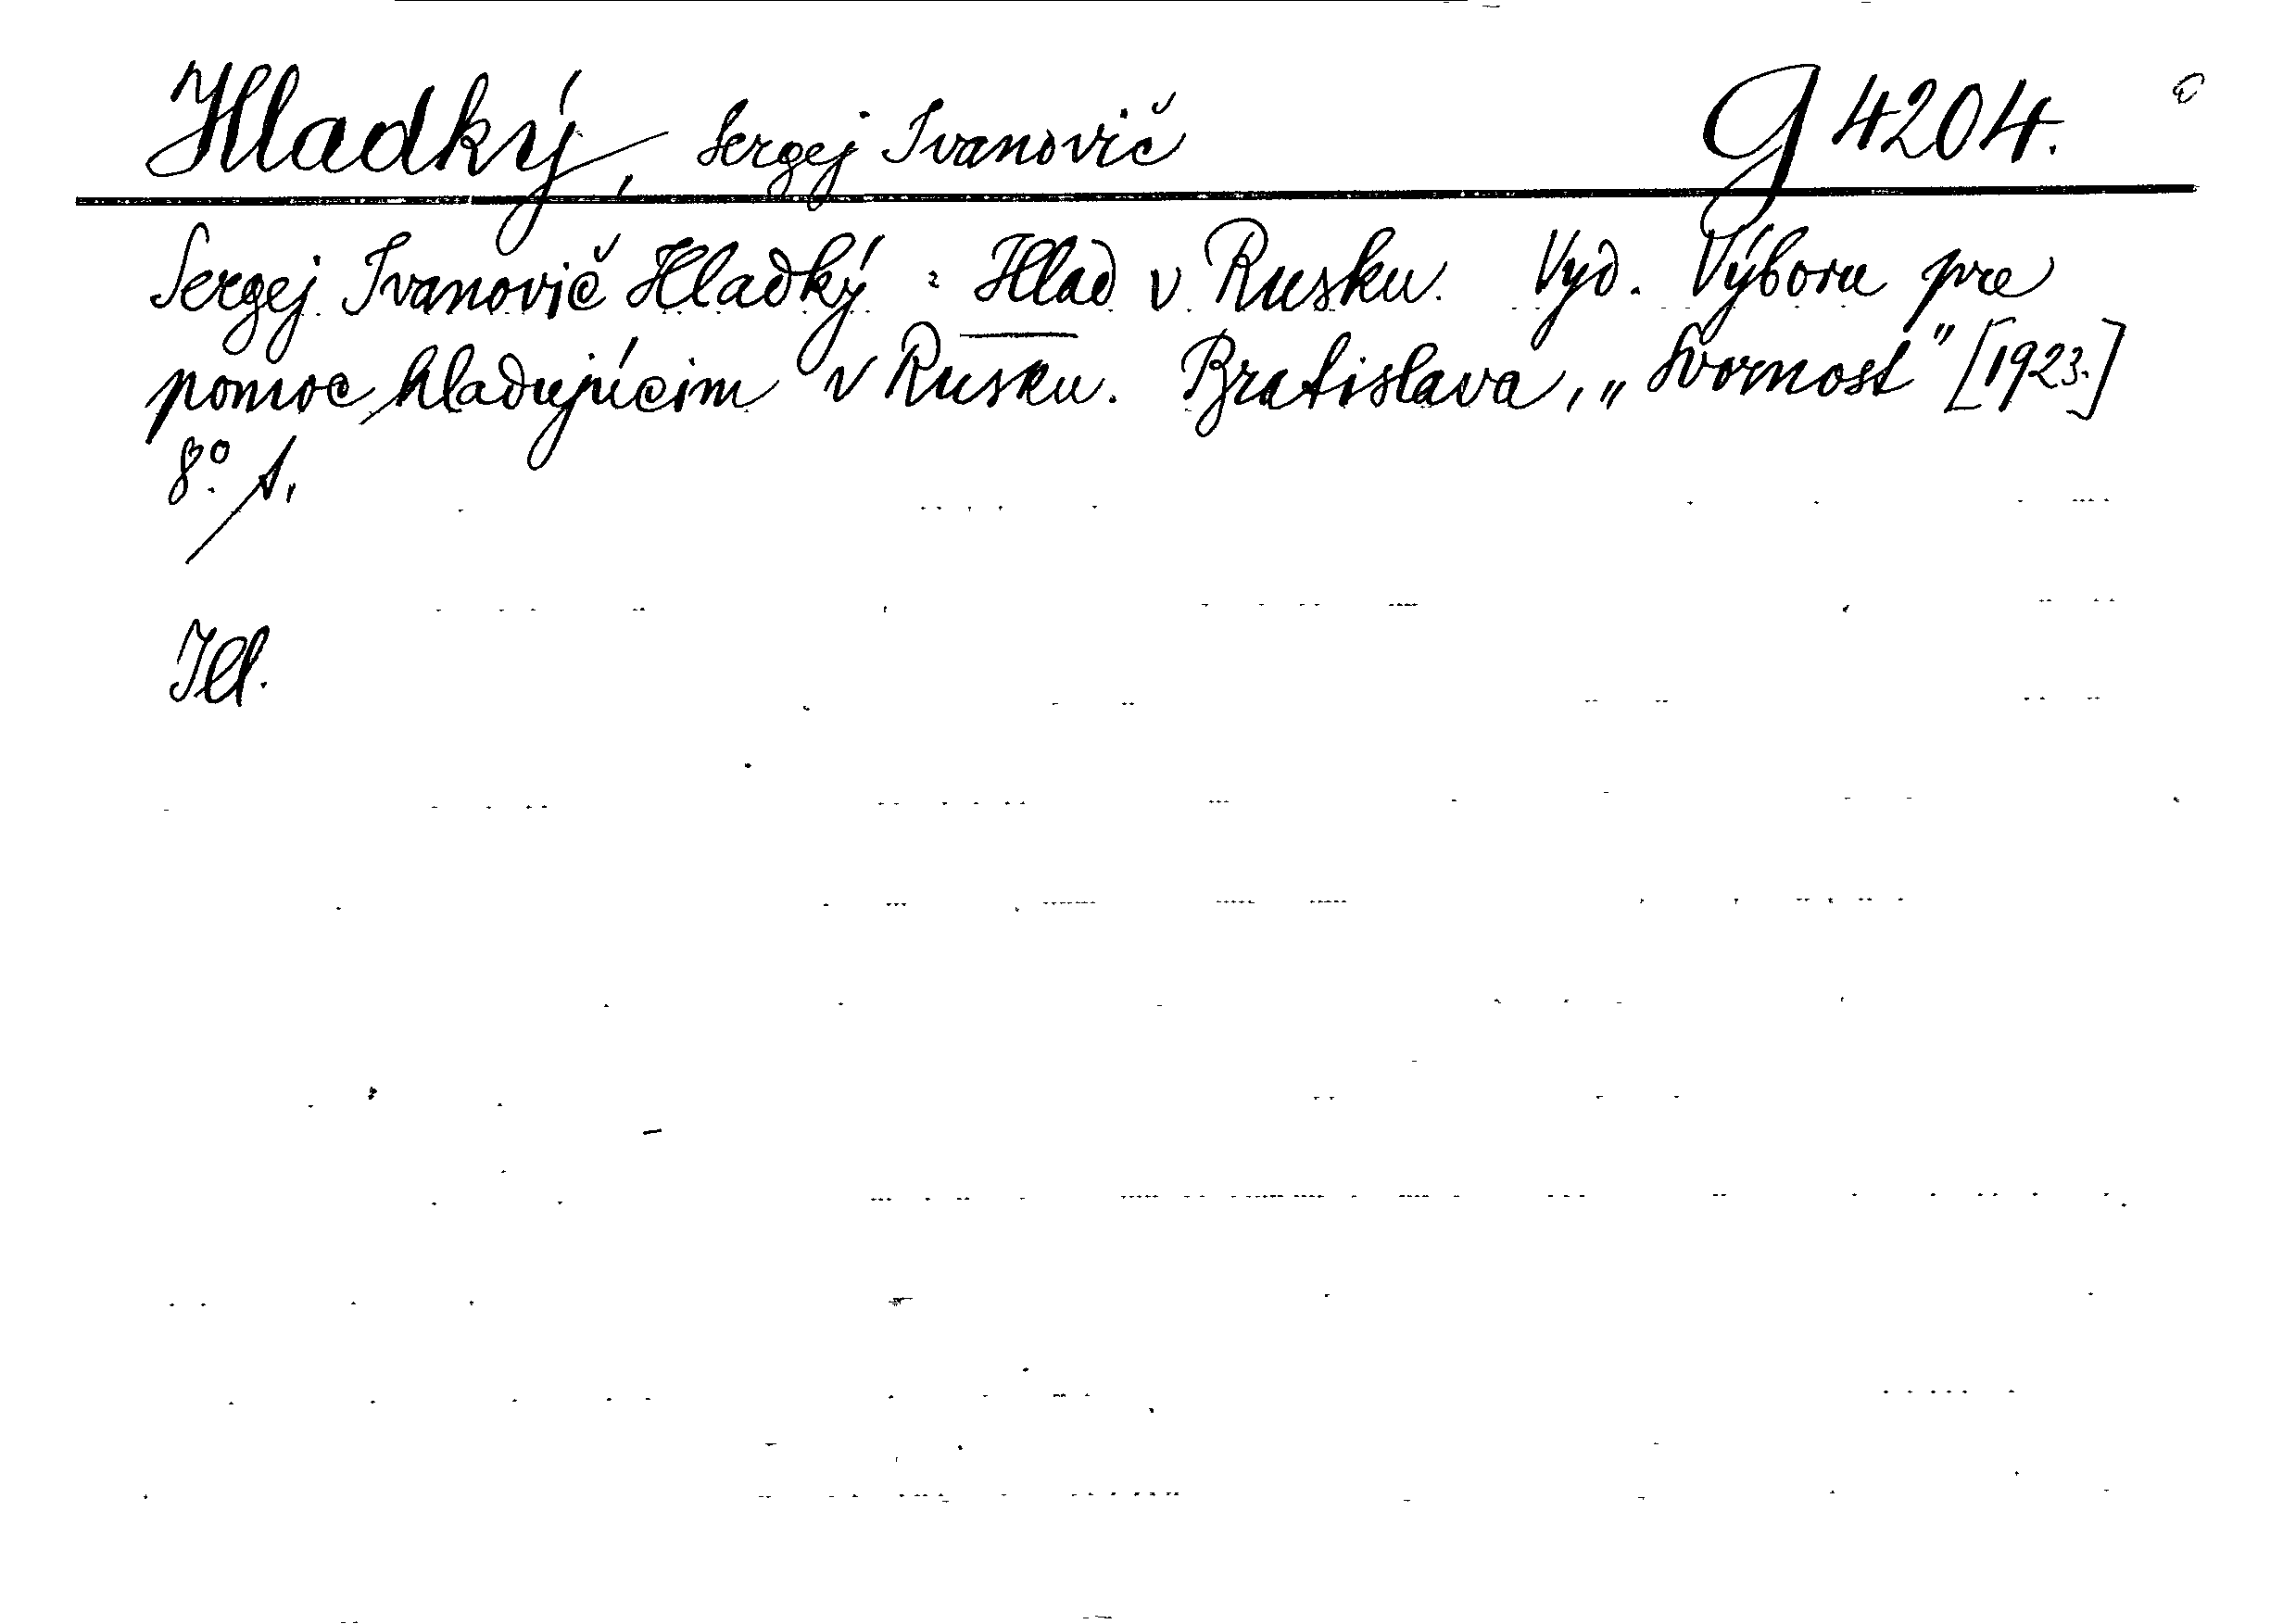 Hladký, Sergej Ivanovič G 4204.
Sergej Ivanovič Hladký: Hlad v Rusku. Vyd. Výboru pre
pomoc hladujúcim v Rusku. Bratislava, „Svornosť" [1923.]
8° s.
Ill.